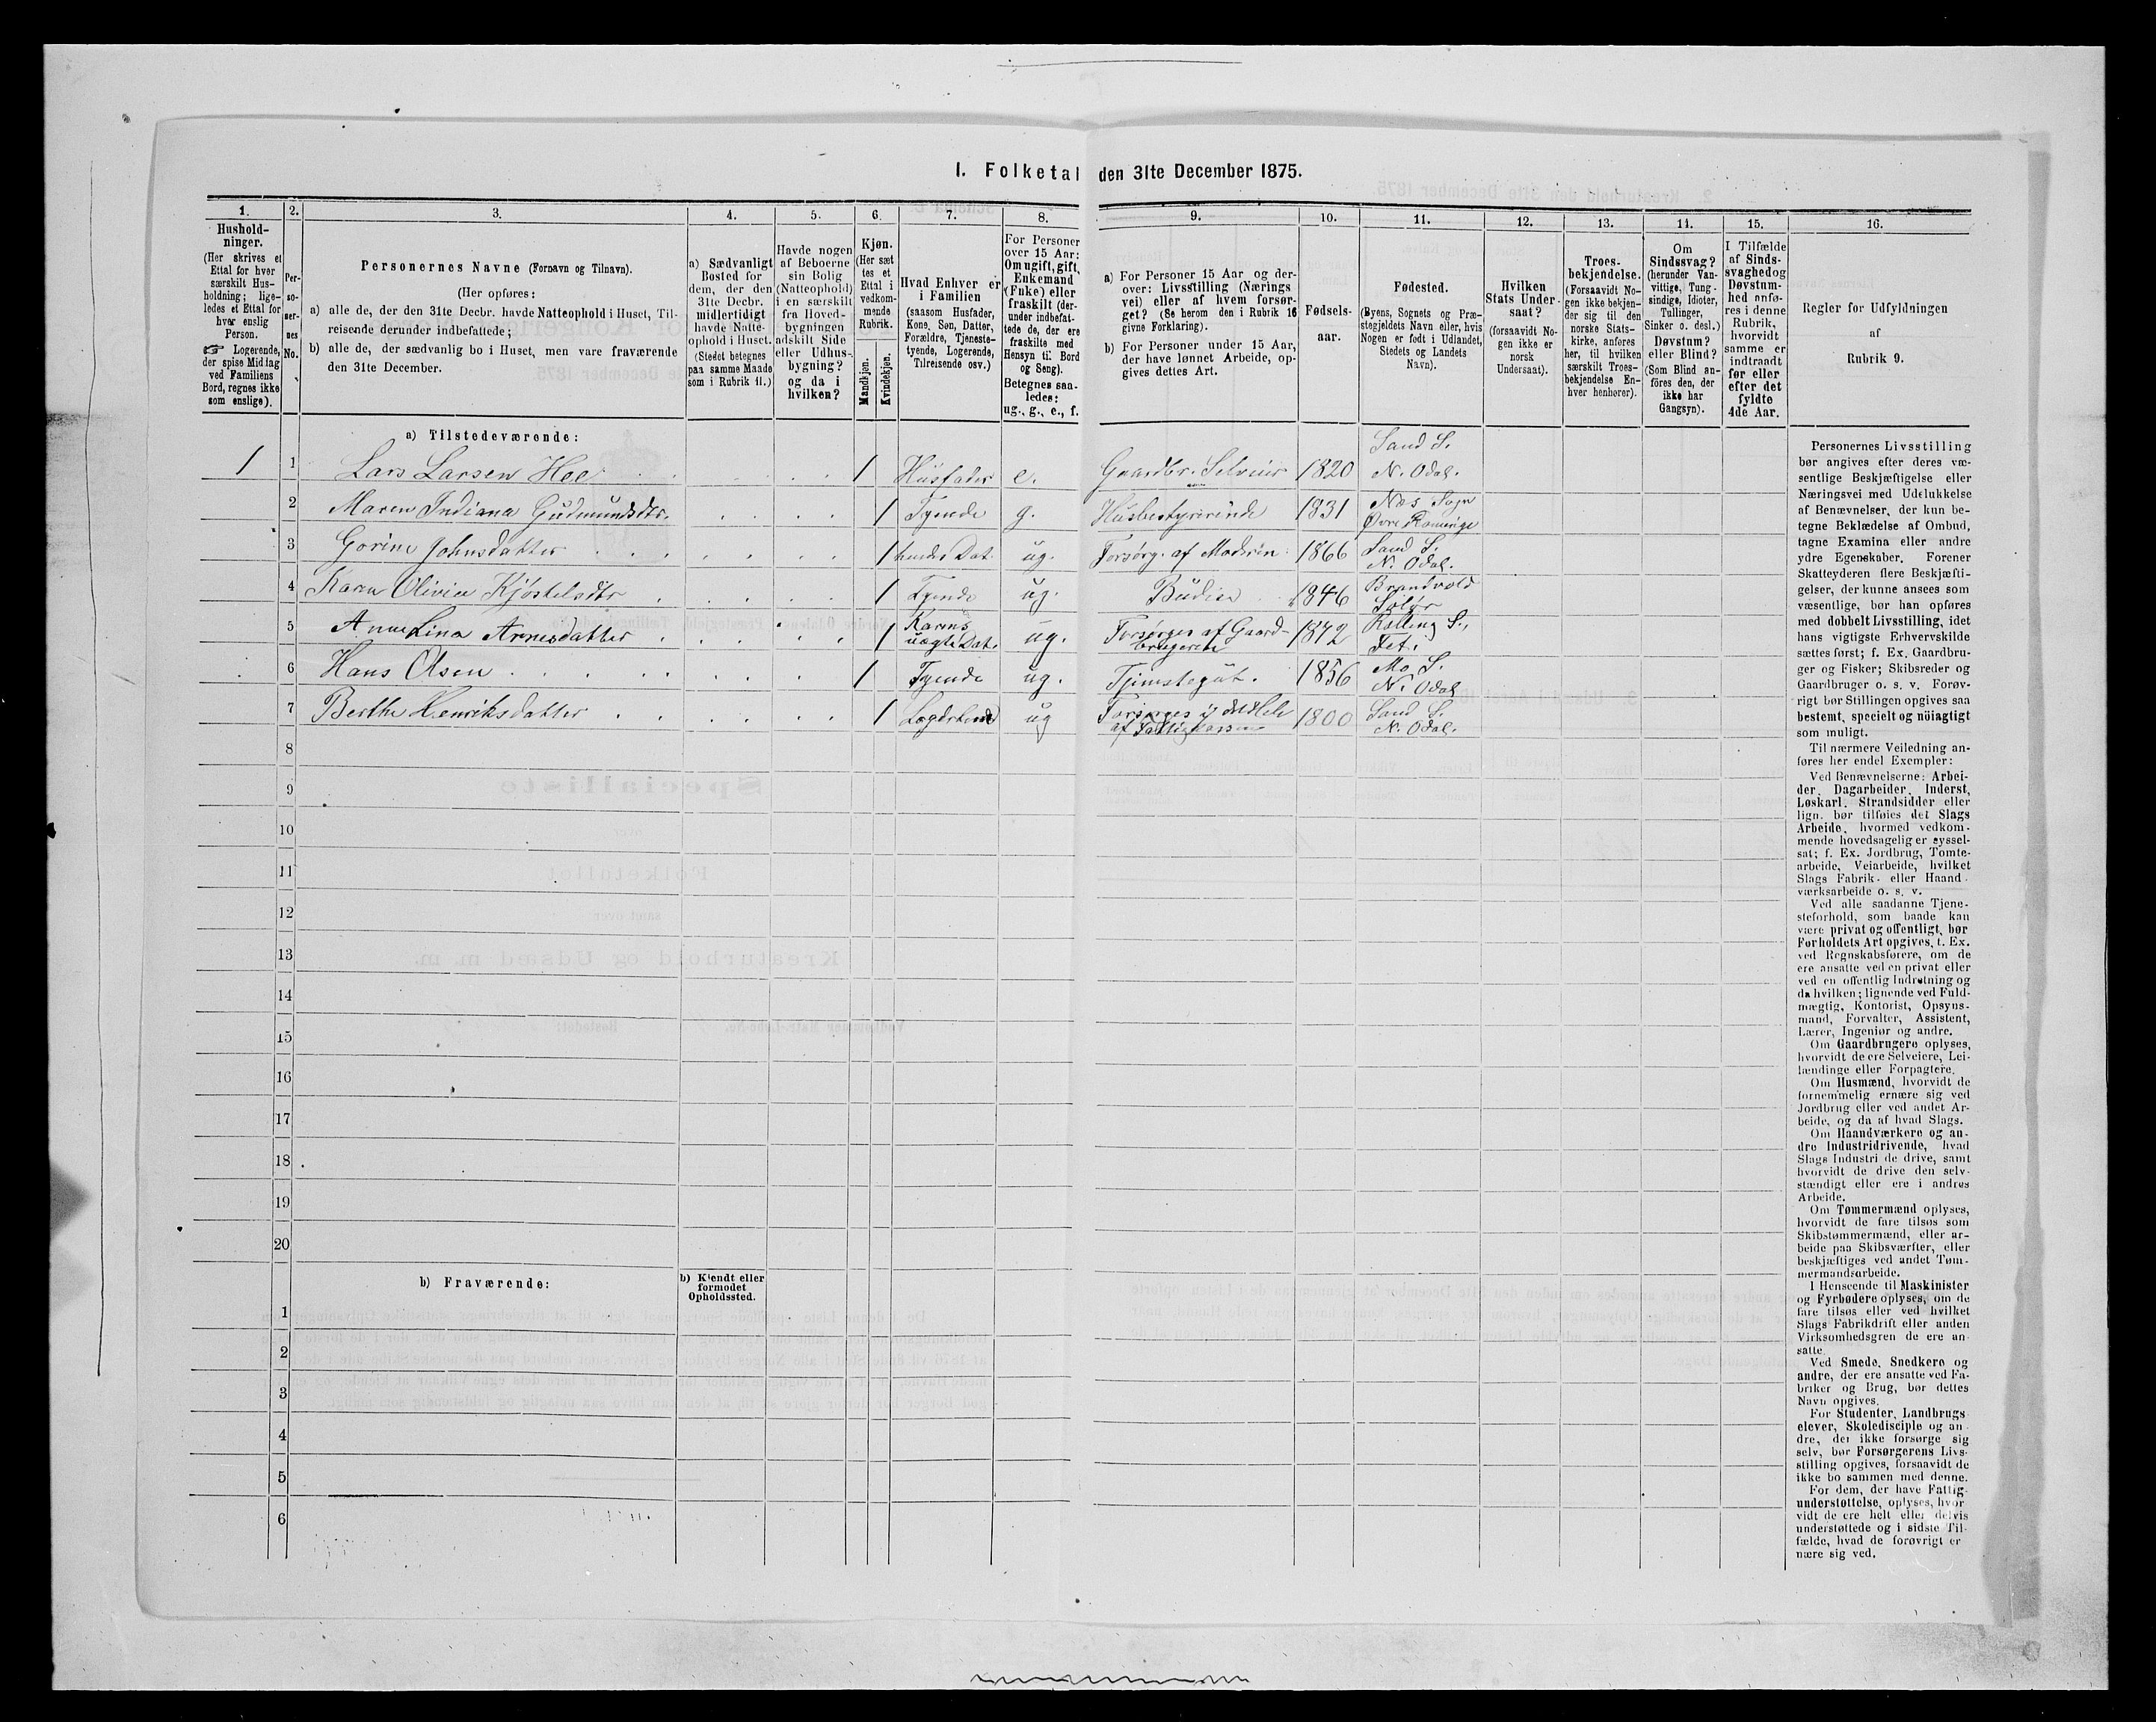 I. Folketal den 31te December 1875.
1.
Hushold-
ninger.
(Her skrives et
Ettal for hver
særskilt Hus-
holdning; lige-
ledes et Ettal for
hver enslig
Person.
☞ Logerende,
der spise Middag
ved Familiens
Bord, regnes ikke
som enslige).
2.
Per-
so-
ner-
nes
No.
3.
Personernes Navne (Fornavn og Tilnavn).
(Her opføres:
a) alle de, der den 31te Decbr. havde Natteophold i Huset, Til-
reisende derunder indbefattede;
b) alle de, der sædvanlig bo i Huset, men vare fraværende
den 31te December.
4.
a) Sædvanligt
Bosted for
dem, der den
31te Decbr.
midlertidigt
havde Natte-
ophold i Huset.
(Stedet betegnes
paa samme Maade
som i Rubrik 11.)
5.
Havde nogen
af Beboerne
sin Bolig
(Natteophold)
i en særskilt
fra Hoved-
bygningen
adskilt Side
eller Udhus-
bygning?
og da i
hvilken?
6.
Kjøn.
(Her sæt
tes et
Ettal i
vedkom-
mende
Rubrik.
Mandkjøn.
Kvindekjøn.
7.
Hvad Enhver er
i Familien
(saasom Husfader,
Kone, Søn, Datter,
Forældre, Tjeneste-
tyende, Logerende,
Tilreisende osv.)
8.
For Personer
over 15 Aar:
Om ugift, gift,
Enkemand
(Enke) eller
fraskilt (der-
under indbefat-
tede de, der ere
fraskilte med
Hensyn til Bord
og Seng).
Betegnes saa-
ledes:
ug., g., e., f.
9.
a) For Personer 15 Aar og der-
over: Livsstilling (Nærings
vei) eller af hvem forsør-
get? (Se herom den i Rubrik 16
givne Forklaring).
b) For Personer under 15 Aar,
der have lønnet Arbeide, op-
gives dettes Art.
10.
Fødsels-
aar.
11.
Fødested.
(Byens, Sognets og Præ-
stegjeldets Navn eller, hvis
Nogen er født i Udlandet,
Stedets og Landets
Navn).
12.
Hvilken
Stats Under-
saat?
(forsaavidt No-
gen ikke er
norsk
Undersaat).
13.
Troes-
bekjendelse.
(Forsaavidt No-
gen ikke bekjen-
der sig til den
norske Stats-
kirke, anføres
her, til hvilken
særskilt Troes-
bekjendelse En-
hver henhører).
14.
Om
Sindssvag?
(herunder Van-
vittige, Tung-
sindige, Idioter,
Sinker o. desl.)
Døvstum?
eller Blind?
(Som Blind an-
føres den, der
ikke har
Gangsyn).
15.
I Tilfælde
af Sinds-
svaghed og
Døvstum-
hed anfø-
res i denne
Rubrik,
hvorvidt
samme er
indtraadt
før eller
efter det
fyldte
4de Aar.
16.
Regler for Udfyldningen
af
Rubrik 9.
a) Tilstedeværende:
1 1 Lars Larsen Hoe 1 Husfader e. Gaardbr. Selveier 1820 Sand S. N. Odal.
2 Maren Indiana Gudmundsdtr. 1 Tyende g. Husbestyrerinde 1831 Næs Sogn Øvre Romerige
3 Gorine Johnsdatter 1 hendes Dat. ug. Forsørg. af Moderen 1866 Sand S. N. Odal.
4 Karen Olivia Kjøstelsdtr 1 Tyende ug. Budeie 1846 Brandvold Solør
5 Anne Lina Arnesdatter 1 Karens uægte Dat. ug. Forsørges af Gaard-brugeren 1872 S., Fet.
6 Hans Olsen 1 Tyende ug. Tjenstegut. 1856 Mo S. N. Odal
7 Berthe Henriksdatter 1 Lægdslem ug Forsørges af 1800 Sand S. N. Odal.
8
9
10
11
12
13
14
15
16
17
18
19
20
b) Fraværende:
b) Kjendt eller
formodet
Opholdssted.
1
2
3
4
5
6
Personernes Livsstilling
bør angives efter deres væ-
sentlige Beskjæftigelse eller
Næringsvei med Udelukkelse
af Benævnelser, der kun be-
tegne Beklædelse af Ombud,
tagne Examina eller andre
ydre Egenskaber. Forener
Skatteyderen flere Beskjæfti-
gelser, der kunne ansees som
væsentlige, bør han opføres
med dobbelt Livsstilling, idet
hans vigtigste Erhvervskilde
sættes først; f. Ex. Gaardbru-
ger og Fisker; Skibsreder og
Gaardbruger o. s. v. Forøv-
rigt bør Stillingen opgives saa
bestemt, specielt og nöiagtigt
som muligt.
Til nærmere Veiledning an-
føres her endel Exempler:
Ved Benævnelserne: Arbei-
der, Dagarbeider, Inderst,
Løskarl, Strandsidder eller
lign. bør tilføies det Slags
Arbeide, hvormed vedkom-
mende hovedsagelig er syssel-
sat; f. Ex. Jordbrug, Tomte-
arbeide, Veiarbeide, hvilket
Slags Fabrik- eller Haand-
værksarbeide o. s. v.
Ved alle saadanne Tjene-
steforhold, som baade kan
være privat og offentligt, bør
Forholdets Art opgives, t. Ex.
ved Regnskabsførere, om de
ere ansatte ved en privat eller
ved en offentlig Indretning og
da hvilken; lignende ved Fuld-
mægtig, Kontorist, Opsyns-
mand, Forvalter, Assistent,
Lærer, Ingeniør og andre.
Om Gaardbrugere oplyses,
hvorvidt de ere Selveiere, Lei-
lændinge eller Forpagtere.
Om Husmænd, hvorvidt de
fornemmelig ernære sig ved
Jordbrug eller ved andet Ar-
beide, og da af hvad Slags.
Om Haandværkere og an-
dre Industridrivende, hvad
Slags Industri de drive, samt
hvorvidt de drive den selv-
stændigt eller ere i andres
Arbeide.
Om Tømmermænd oplyses,
hvorvidt de fare tilsøs som
Skibstømmermænd, eller ar-
beide paa Skibsværfter, eller
beskjæftiges ved andet Tøm-
mermandsarbeide.
I Henseende til Maskinister
og Fyrbødere oplyses, om de
fare tilsøs eller ved hvilket
Slags Fabrikdrift eller anden
Virksomhedsgren de ere an-
satte.
Ved Smede, Snedkere og
andre, der ere ansatte ved Fa-
briker og Brug, bør dettes
Navn opgives.
For Studenter, Landbrugs-
elever, Skoledisciple og an-
dre, der ikke forsørge sig
selv, bør Forsørgerens Livs-
stilling opgives, forsaavidt de
ikke bo sammen med denne.
For dem, der have Fattig-
understøttelse, oplyses, hvor
vidt de ere helt eller delvis
understøttede og i sidste Til-
fælde, hvad de forøvrigt er
nære sig ved.